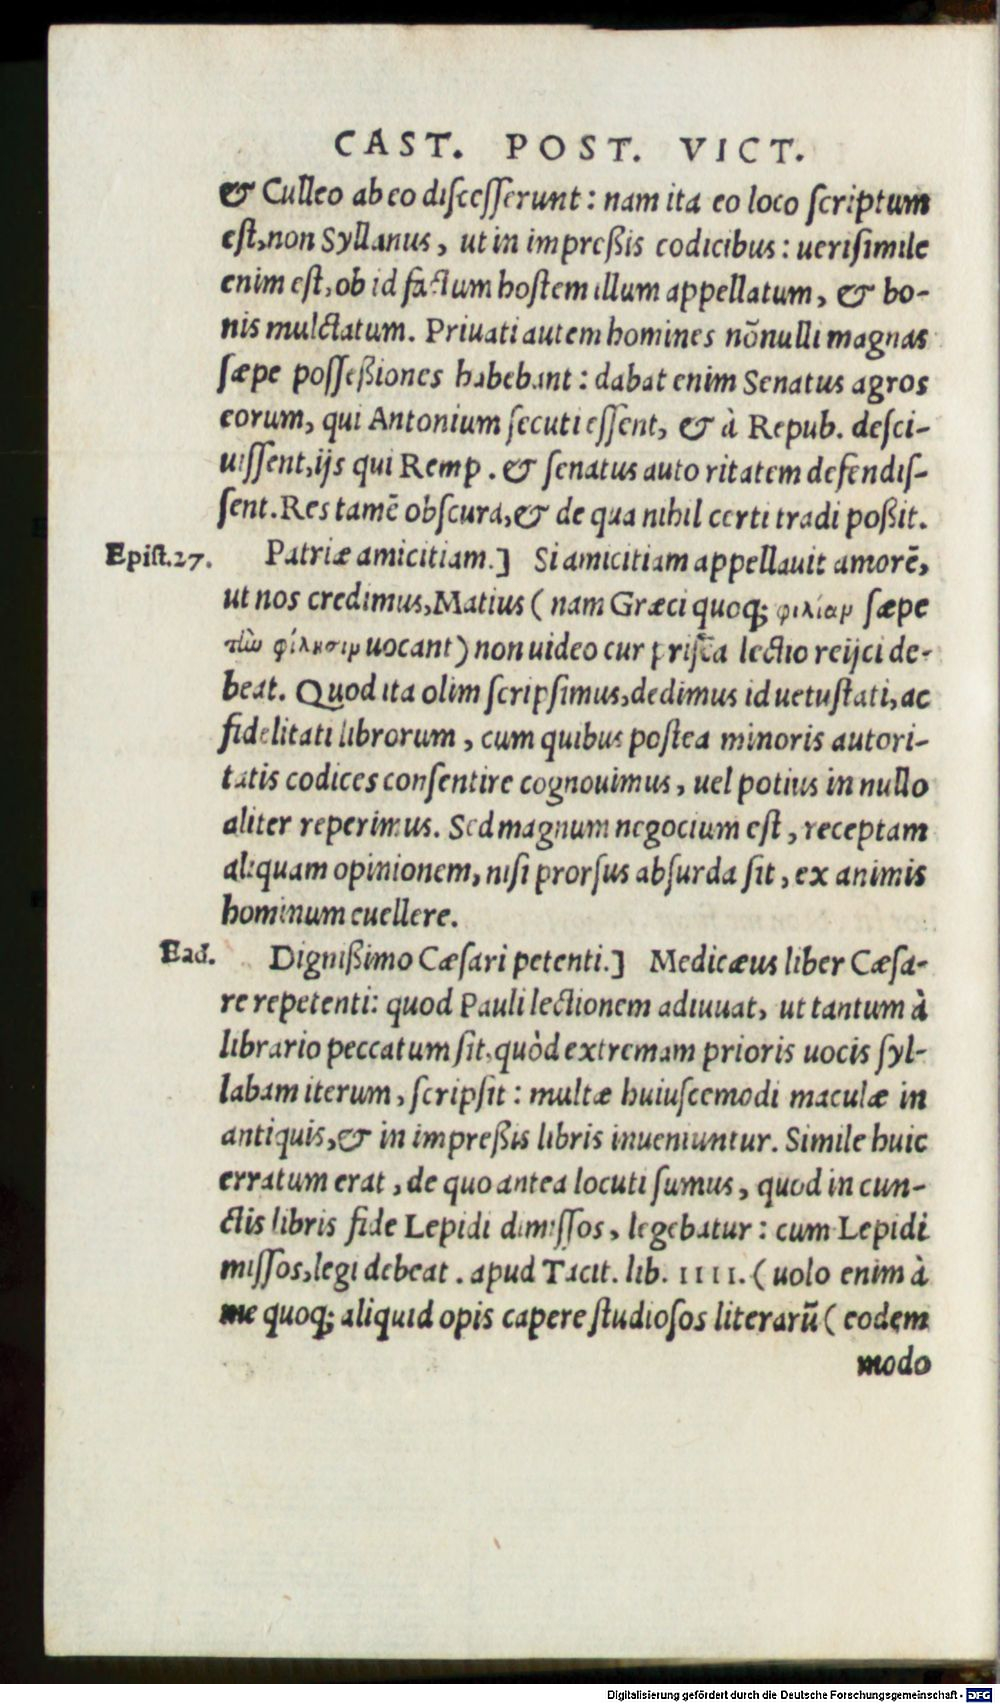 CAST. POST. VICT.
& Culleo ab eo discesserunt: nam ita eo loco scriptum
est, non Syllanus, ut in impreßis codicibus: uerisimile
enim est, ob id factum hostem illum appellatum, & bo-
nis mulctatum. Priuati autem homines nõnulli magnas
sæpe posseßiones habebant: dabat enim Senatus agros
eorum, qui Antonium secuti essent, & à Repub. desci-
uissent, ijs qui Remp. & senatus autoritatem defendis-
sent. Res tamẽ obscura, & de qua nihil certi tradi poßit.
Epist.27. Patriæ amicitiam.] Si amicitiam appellauit amorẽ,
ut nos credimus, Matius (nam Græci quoq; φιλίαν sæpe
τὴν φίλησιν uocant) non uideo cur prisca lectio reijci de-
beat. Quod ita olim scripsimus, dedimus id uetustati, ac
fidelitati librorum, cum quibus postea minoris autori-
tatis codices consentire cognouimus, uel potius in nullo
aliter reperimus. Sed magnum negocium est, receptam
aliquam opinionem, nisi prorsus absurda sit, ex animis
hominum euellere.
Ead. Dignißimo Cæsari petenti.] Medicæus liber Cæsa-
re repetenti: quod Pauli lectionem adiuuat, ut tantum à
librario peccatum sit, quòd extremam prioris uocis syl-
labam iterum, scripsit: multæ huiuscemodi maculæ in
antiquis, & in impreßis libris inueniuntur. Simile huic
erratum erat, de quo antea locuti sumus, quod in cun-
ctis libris fide Lepidi dimissos, legebatur: cum Lepidi
missos, legi debeat. apud Tacit. lib. IIII. (uolo enim à
me quoq; aliquid opis capere studiosos literarũ ( eodem
modo
Digitalisierung gefördert durch die Deutsche Forschungsgemeinschaft - DFG